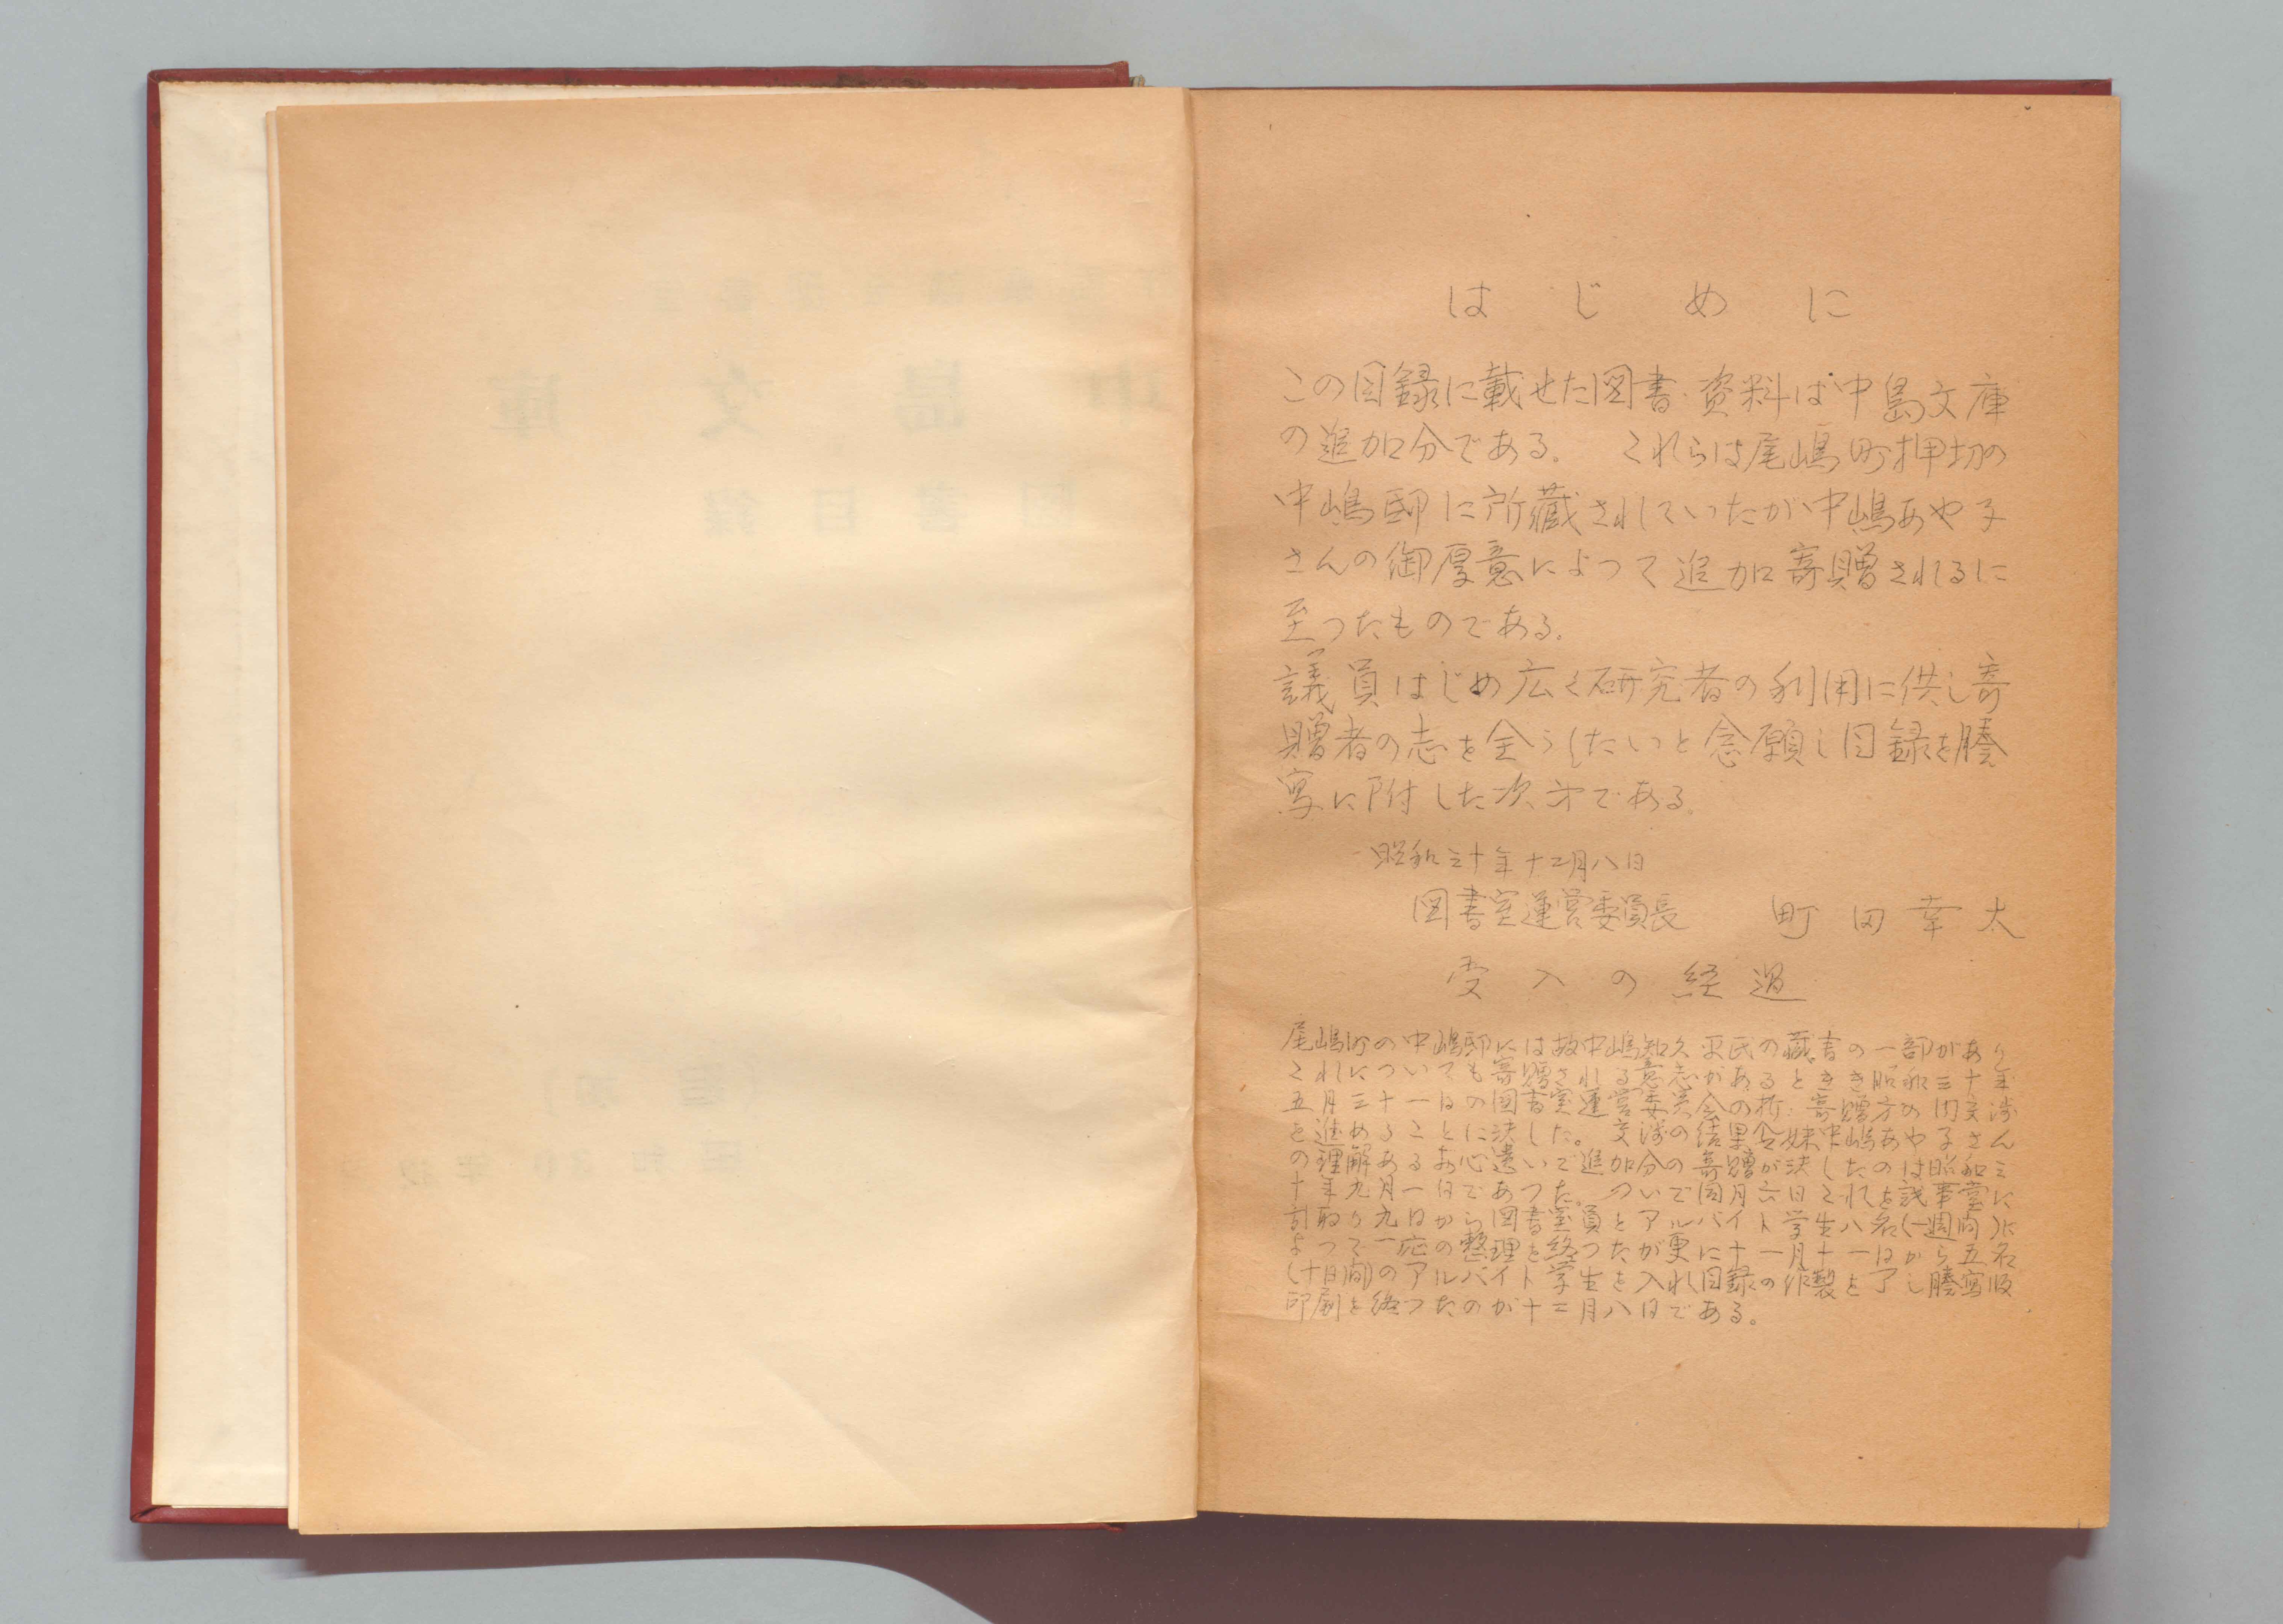 はじめに
この目録に載せた図書・資料は中島文庫
の追加分である。　これらは尾嶋町押切の
中嶋邸に所藏されていたが中嶋あや子
さんの御厚意によつて追加寄贈されるに
至つたものである。
議員はじめ広く研究者の利用に供し寄
贈者の志を全うしたいと念願し目録を謄
寫に附した次才である。
昭和三十年十二月八日
図書室運営委員長　町田幸太
受入の経過
尾嶋町の中嶋邸には故中嶋知久平氏の藏書の一部があり
これについても寄贈される意志があるときき昭和三十年
五月三十一日の図書室運営委員会の折、寄贈方の内交渉
を進めることに決した。交渉の結果令妹中嶋あや子さん
の理解あるお心遣いで追加分の寄贈が決したのは昭和三
十年九月一日であつた。ついで同月六日これを議事堂に
引取り九日から図書室員とアルバイト学生八名(一週間)に
よつて一応の整理を終つたが更に十一月十一日から五名
(十日間)のアルバイト学生を入れ目録の作製を了し謄寫版
印刷を終つたのが十二月八日である。